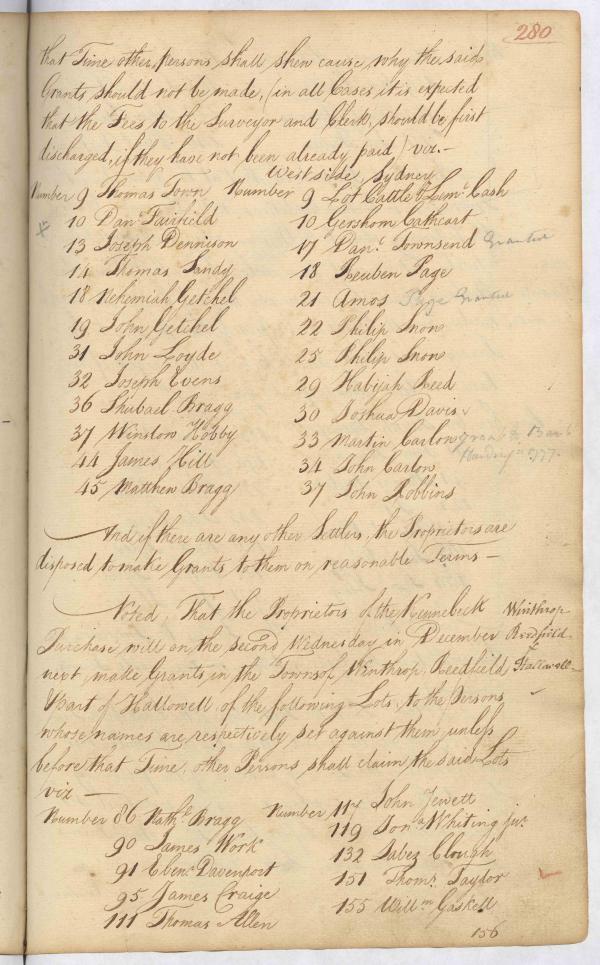 280
that Time other persons shall shew cause why the said
Grants should not be made, (in all Cases it is expected
that the Fees to the Surveyor and Clerk, should be first
discharged, if they have not been already paid) viz.—
West side, Sydney
Number 9 Thomas Town Number 9 Lot Cattle & Leml. Cash
10 Danl. Fairfield 10 Gershom Cathcart
13 Joseph Dennison 17 Danl. Townsend Granted
14 Thomas Sandy 18 Reuben Page
18 Nehemiah Getchel 21 Amos Page Granted
19 John Getchel 22 Philip Snow
31 John Loyde 25 Philip Snow
32 Joseph Evens 29 Habijah Reed
36 Shubael Bragg 30 Joshua Davis
37 Winslow Hobby 33 Martin Carlon
44 James Hill 34 John Carlon
45 Matthew Bragg 37 John Robbins
And if there are any other Settlers, the Proprietors are
disposed to make Grants to them on reasonable Terms—
Noted, That the Proprietors of the Kennebeck Winthrop
Purchase will on the second Wednesday in December Reedfield
next, make Grants in the Towns of Winthrop, Reedfield, & Hallowell
Part of Hallowell, of the following Lots, to the Persons
whose names are respectively set against them, unless
before that Time, other Persons shall claim the said Lots
viz—
Number 86 Nathl. Bragg Number 117 John Jewett
90 James Work 119 Jona. Whiting junr.
91 Ebenr. Davenport 132 Jabez Clough
95 James Craige 151 Thoms. Taylor
111 Thomas Allen 155 Willm. Gaskell
156